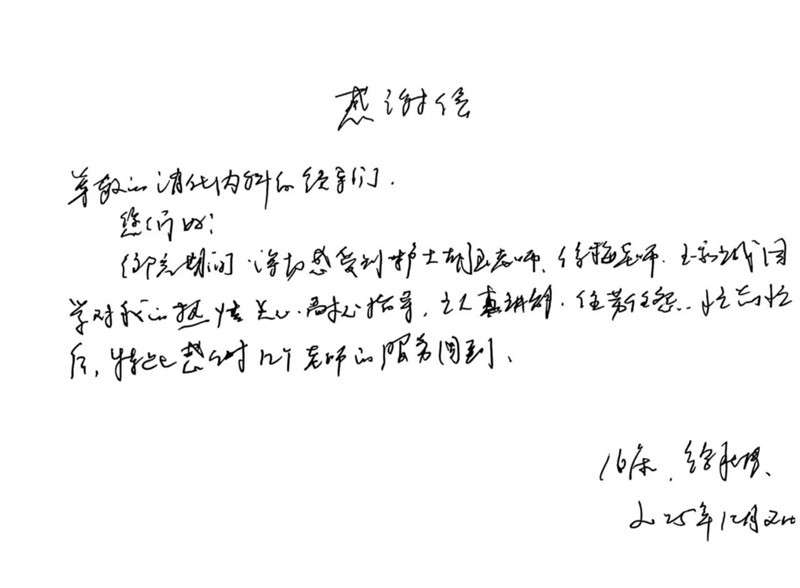 感谢信
尊敬的消化内科的领导们.
您们好:
住院期间.深切感受到护士胡老师、徐梅老师.王同
学对我的热情关心.耐心指导,主人真讲解.任劳任怨..忙前忙
后,特此感谢几个老师的服务周到、
16床.徐
2025年12月